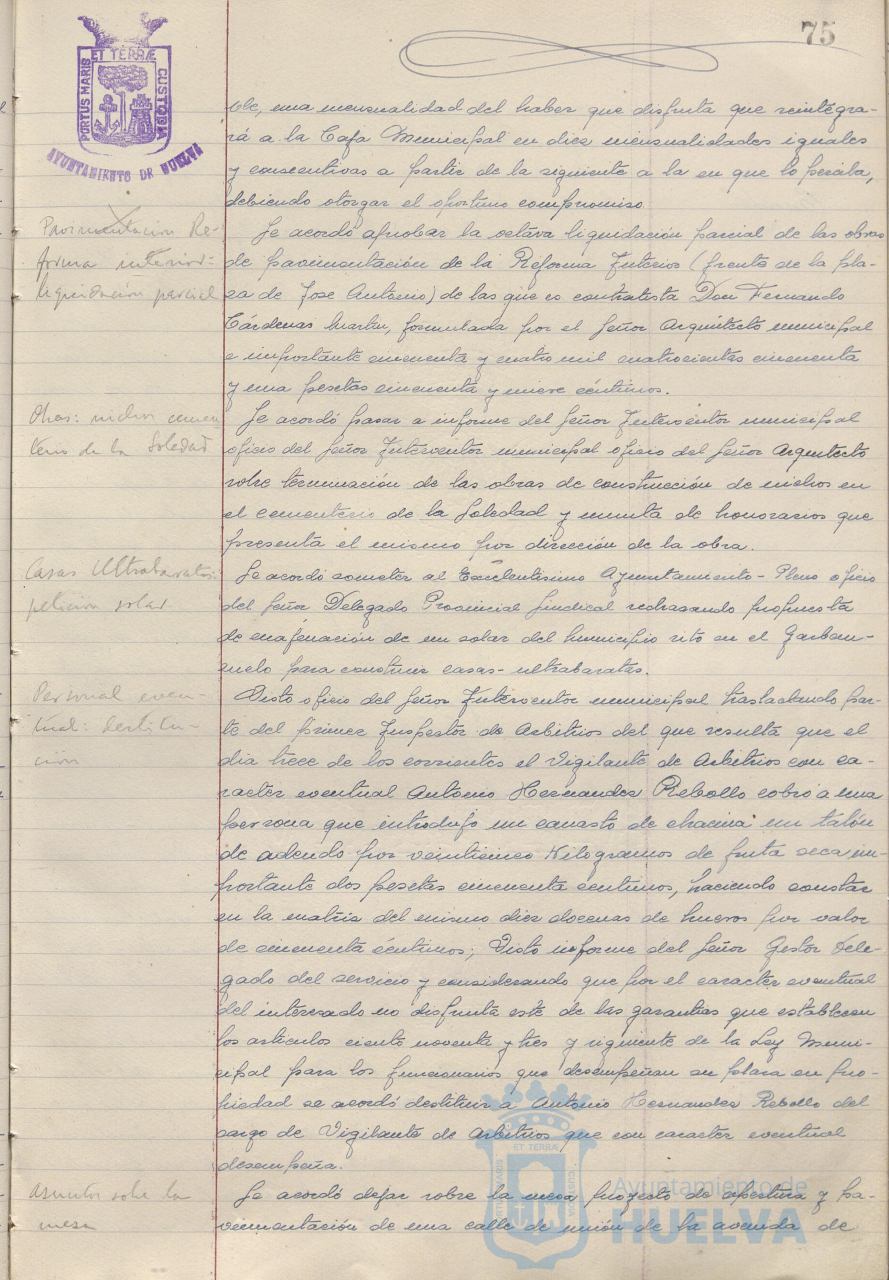 75
PORTUS MARIS
ET TERRÆ
CUSTODIA
AYUNTAMIENTO DE HUELVA
ble, una mensualidad del haber que disfruta que reintegra-
rá a la Caja Municipal en diez mensualidades iguales
y consecutivas a partir de la siguiente a la en que lo perciba,
debiendo otorgar el oportuno compromiso.
Pavimentación Re-
forma interior:
liquidación parcial
Se acordó aprobar la octava liquidación parcial de las obras
de pavimentación de la Reforma Interior (frente de la pla-
za de Jose Antonio) de las que es contratista Don Fernando
Cárdenas Martin, formulada por el Señor Arquitecto municipal
e importante cincuenta y cuatro mil cuatrocientas cincuenta
y una pesetas cincuenta y nueve céntimos.
Obras: nichos cemen
terio de la Soledad
Se acordó pasar a informe del Señor Interventor municipal
oficio del Señor Interventor municipal oficio del Señor Arquitecto
sobre terminación de las obras de construcción de nichos en
el cementerio de la Soledad y minuta de honorarios que
presenta el mismo por dirección de la obra.
Casas Ultrabaratas:
petición solar
Se acordó someter al Excelentísimo Ayuntamiento-Pleno oficio
del Señor Delegado Provincial Sindical rechasando propuesta
de enajenación de un solar del municipio sito en el Garban-
zuelo para construir casas-ultrabaratas.
Personal even-
tual: destitu-
ción
Visto oficio del Señor Interventor municipal trasladando par-
te del primer Inspector de Arbitrios del que resulta que el
dia trece de los corrientes el Vigilante de Arbitrios con ca-
racter eventual Antonio Hernandez Rebollo cobró a una
persona que introdujo un canasto de chacina un talón
de adeudo por veinticinco Kilogramos de fruta seca im-
portante dos pesetas cincuenta centimos, haciendo constar
en la matriz del mismo diez docenas de huevos por valor
de cincuenta céntimos; Visto informe del Señor Gestor Dele-
gado del servicio y considerando que por el caracter eventual
del interesado no disfruta este de las garantias que establecen
los articulos ciento noventa y tres y siguiente de la Ley Muni-
cipal para los funcionarios que desempeñan su plaza en pro-
piedad se acordó destituir a Antonio Hernandez Rebollo del
cargo de Vigilante de Arbitrios que con caracter eventual
desempeña.
Asuntos sobre la
mesa
Se acordó dejar sobre la mesa proyecto de apertura y pa-
vimentación de una calle de unión de la avenida de
PORTUS MARIS
ET TERRÆ
CUSTODIA
Ayuntamiento de
HUELVA